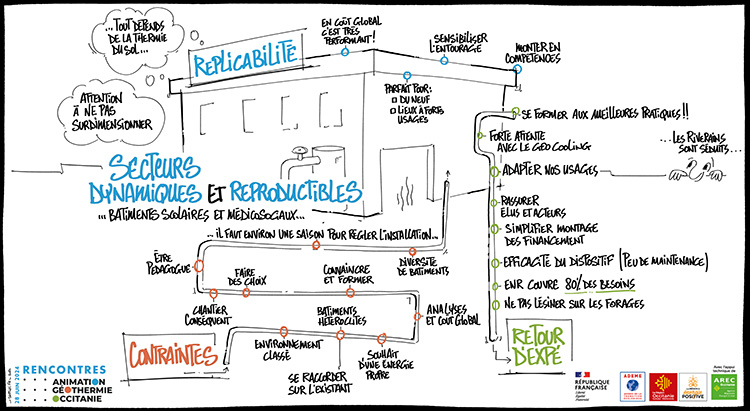 ...TOUT DÉPENDS
DE LA THERMIE
DU SOL...
ATTENTION
À NE PAS
SURDIMENSIONNER
REPLICABILITÉ
EN COÛT GLOBAL
C'EST TRÈS
PERFORMANT!
SENSIBILISER
L'ENTOURAGE
MONTER EN
COMPÉTENCES
PARFAIT POUR:
DU NEUF
LIEUX À FORTS
USAGES
SE FORMER AUX MEILLEURES PRATIQUES!!
FORTE ATTENTE
AVEC LE GÉO COOLING
...LES RIVERAINS
SONT SÉDUITS...
ADAPTER NOS USAGES
SECTEURS
DYNAMIQUES ET REPRODUCTIBLES
...BATIMENTS SCOLAIRES ET MÉDICOSOCIAUX...
RASSURER
ELUS ET ACTEURS
SIMPLIFIER MONTAGE
DES FINANCEMENT
EFFICACITÉ DU DISPOSITIF (PEU DE MAINTENANCE)
ENR COUVRE 80% DES BESOINS
NE PAS LÉSINER SUR LES FORAGES
...IL FAUT ENVIRON UNE SAISON POUR RÉGLER L'INSTALLATION...
ÊTRE
PÉDAGOGUE
FAIRE
DES CHOIX
CONVAINCRE
ET FORMER
DIVERSITÉ
DE BATIMENTS
CHANTIER
CONSÉQUENT
BATIMENTS
HÉTÉROCLITES
ANALYSES
ET COÛT GLOBAL
CONTRAINTES
ENVIRONNEMENT
CLASSÉ
SE RACCORDER
SUR L'EXISTANT
SOUHAIT
D'UNE ÉNERGIE
PROPRE
RETOUR
D'EXPÉ
28 JUIN 2024
RENCONTRES
ANIMATION
GÉOTHERMIE
OCCITANIE
RÉPUBLIQUE
FRANÇAISE
Liberté
Égalité
Fraternité
ADEME
Occitanie
POSITIVE
Avec l'appui
technique de
AREC